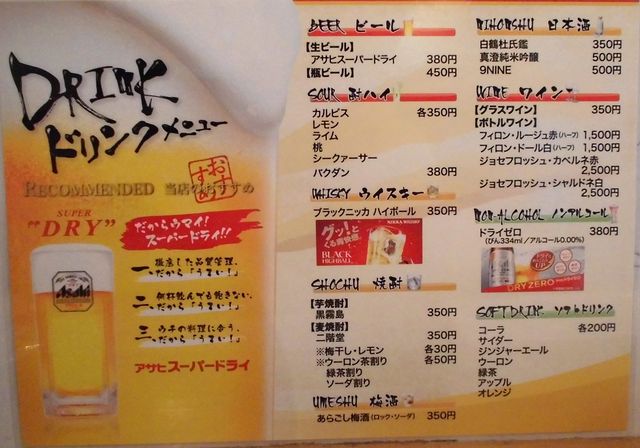 DRINK
ドリンクメニュー
おすすめ
RECOMMENDED 当店のおすすめ
SUPER
"DRY"
だからウマイ!
スーパードライ!!
Asahi
一、徹底した品質管理。
だから「うまい!」
二、何杯飲んでも飽きない。
だから「うまい!」
三、ウチの料理に合う。
だから「うまい!」
アサヒスーパードライ
BEER ビール
【生ビール】
アサヒスーパードライ 380円
【瓶ビール】 450円
SOUR 酎ハイ
カルピス 各350円
レモン
ライム
桃
シークァーサー
バクダン 380円
WHISKY ウイスキー
ブラックニッカ ハイボール 350円
グッ!と
くる爽快感。
BLACK
HIGHBALL
SHOCHU 焼酎
【芋焼酎】
黒霧島 350円
【麦焼酎】
二階堂 350円
※梅干し・レモン 各30円
※ウーロン茶割り 各50円
緑茶割り
ソーダ割り
UMESHU 梅酒
あらごし梅酒(ロック・ソーダ) 350円
NIHONSHU 日本酒
白鶴杜氏鑑 350円
真澄純米吟醸 500円
9NINE 500円
WINE ワイン
【グラスワイン】 350円
【ボトルワイン】
フィロン・ルージュ赤(ハーフ) 1,500円
フィロン・ドール白(ハーフ) 1,500円
ジョセフロッシュ・カベルネ赤
2,500円
ジョセフロッシュ・シャルドネ白
2,500円
NON-ALCOHOL ノンアルコール
ドライゼロ 380円
(びん334ml/アルコール0.00%)
DRY ZERO
SOFT DRINK ソフトドリンク
コーラ 各200円
サイダー
ジンジャーエール
ウーロン
緑茶
アップル
オレンジ